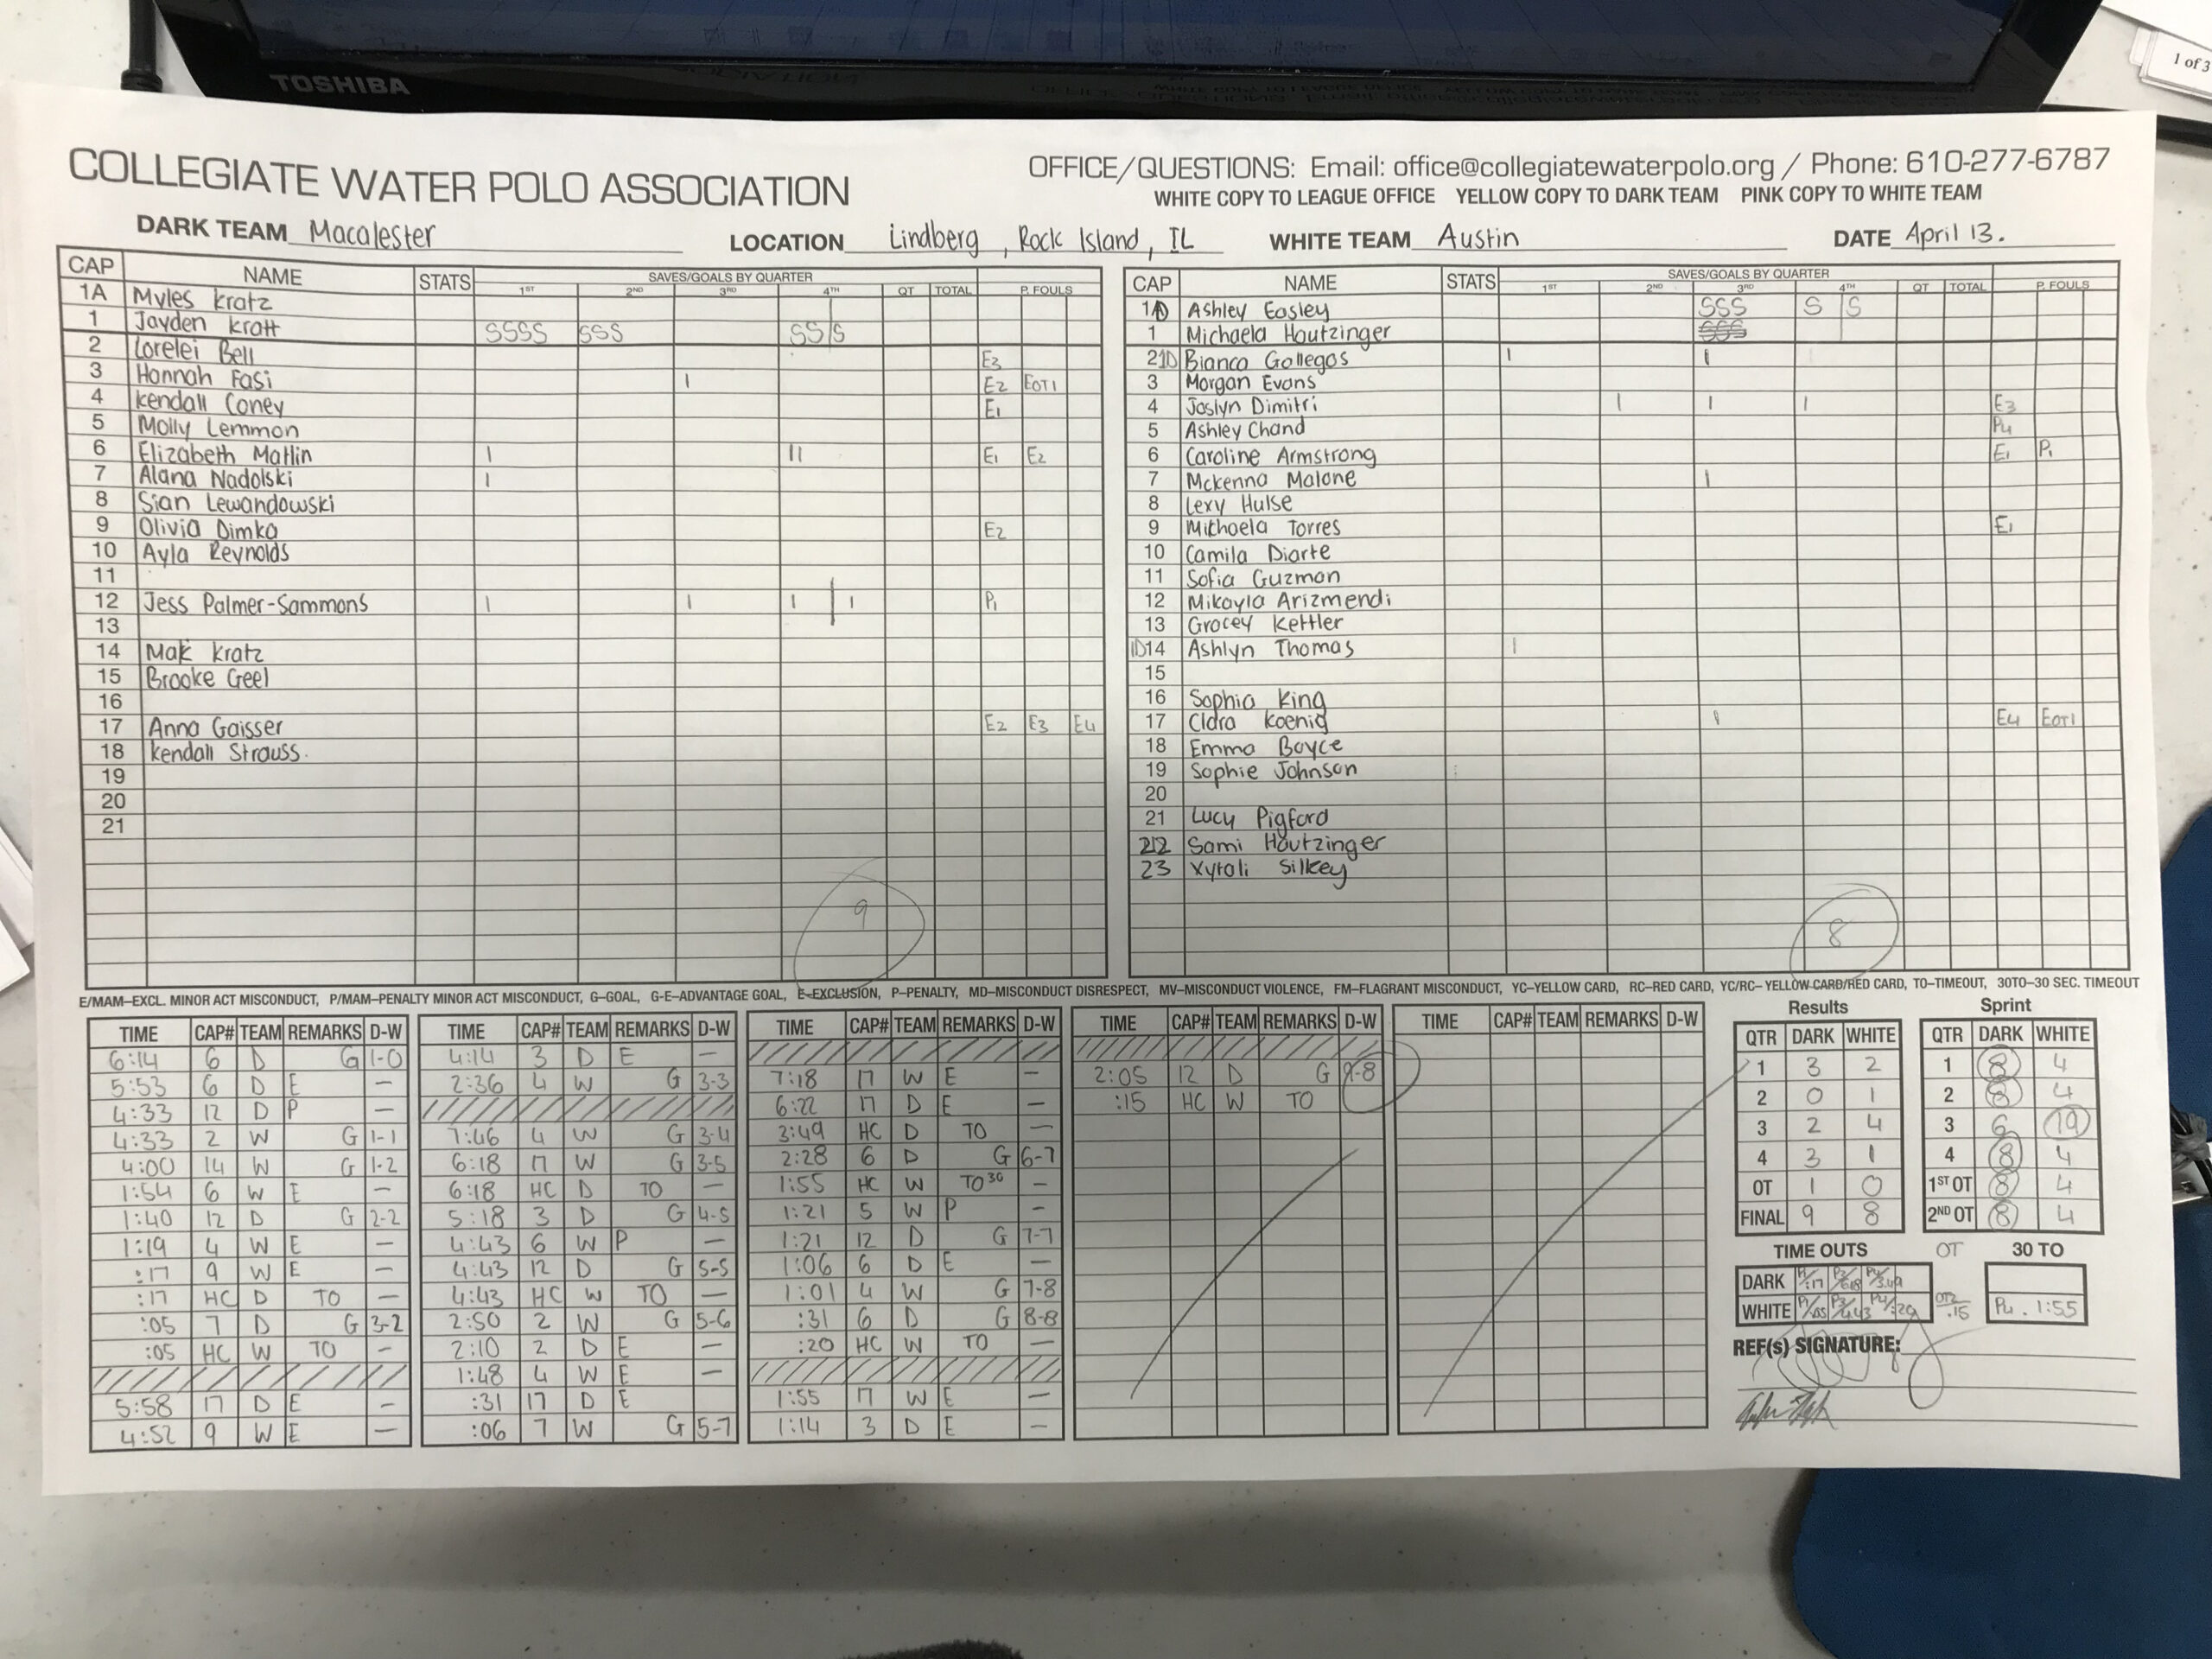 TOSHIBA
1 of 3
COLLEGIATE WATER POLO ASSOCIATION
OFFICE/QUESTIONS: Email: office@collegiatewaterpolo.org / Phone: 610-277-6787
WHITE COPY TO LEAGUE OFFICE YELLOW COPY TO DARK TEAM PINK COPY TO WHITE TEAM
DARK TEAM Macalester LOCATION Lindberg, Rock Island, IL WHITE TEAM Austin DATE April 13.
CAP NAME STATS SAVES/GOALS BY QUARTER
1ST 2ND 3RD 4TH OT TOTAL P. FOULS
1A Myles Kratz
1 Jayden Kratt SSSS SSS SS S
2 Lorelei Bell E3
3 Hannah Fasi I E2 EOT1
4 Kendall Coney E1
5 Molly Lemmon
6 Elizabeth Matlin I II E1 E2
7 Alana Nadolski I
8 Sian Lewandowski
9 Olivia Dimka E2
10 Ayla Reynolds
11
12 Jess Palmer-Sammons I I I I P1
13
14 Mak Kratz
15 Brooke Geel
16
17 Anna Gaisser E2 E3 E4
18 Kendall Strauss.
19
20
21
9
CAP NAME STATS SAVES/GOALS BY QUARTER
1ST 2ND 3RD 4TH OT TOTAL P. FOULS
Ashley Easley SSS S S
1 Michaela Houtzinger SSS
2 Bianca Gallegos I I
3 Morgan Evans
4 Joslyn Dimitri I I I E3
5 Ashley Chand P4
6 Caroline Armstrong E1 P1
7 Mckenna Malone I
8 Lexy Hulse
9 Michaela Torres E1
10 Camila Diarte
11 Sofia Guzman
12 Mikayla Arizmendi
13 Gracey Kettler
14 Ashlyn Thomas I
15
16 Sophia King
17 Clara Koenig I E4 EOT1
18 Emma Boyce
19 Sophie Johnson
20
21 Lucy Pigford
22 Sami Houtzinger
23 Xytali Silkey
8
E/MAM–EXCL. MINOR ACT MISCONDUCT, P/MAM–PENALTY MINOR ACT MISCONDUCT, G–GOAL, G-E–ADVANTAGE GOAL, E–EXCLUSION, P–PENALTY, MD–MISCONDUCT DISRESPECT, MV–MISCONDUCT VIOLENCE, FM–FLAGRANT MISCONDUCT, YC–YELLOW CARD, RC–RED CARD, YC/RC– YELLOW CARD/RED CARD, TO–TIMEOUT, 30TO–30 SEC. TIMEOUT
TIME CAP# TEAM REMARKS D-W
6:14 6 D G 1-0
5:53 6 D E —
4:33 12 D P —
4:33 2 W G 1-1
4:00 14 W G 1-2
1:54 6 W E —
1:40 12 D G 2-2
1:19 4 W E —
:17 9 W E —
:17 HC D TO —
:05 7 D G 3-2
:05 HC W TO -
5:58 17 D E -
4:52 9 W E —
TIME CAP# TEAM REMARKS D-W
4:14 3 D E —
2:36 4 W G 3-3
7:46 4 W G 3-4
6:18 17 W G 3-5
6:18 HC D TO —
5:18 3 D G 4-5
4:43 6 W P —
4:43 12 D G 5-5
4:43 HC W TO —
2:50 2 W G 5-6
2:10 2 D E —
1:48 4 W E —
:31 17 D E
:06 7 W G 5-7
TIME CAP# TEAM REMARKS D-W
7:18 17 W E —
6:22 17 D E —
3:49 HC D TO —
2:28 6 D G 6-7
1:55 HC W TO30 —
1:21 5 W P -
1:21 12 D G 7-7
1:06 6 D E —
1:01 4 W G 7-8
:31 6 D G 8-8
:20 HC W TO —
1:55 17 W E —
1:14 3 D E —
TIME CAP# TEAM REMARKS D-W
2:05 12 D G 9-8
:15 HC W TO
TIME CAP# TEAM REMARKS D-W
Results
QTR DARK WHITE
1 3 2
2 0 1
3 2 4
4 3 1
OT 1 0
FINAL 9 8
Sprint
QTR DARK WHITE
1 8 4
2 8 4
3 6 19
4 8 4
1ST OT 8 4
2ND OT 8 4
TIME OUTS OT 30 TO
DARK P1/:17 P3/6:18 P4/3:49
WHITE P1/:05 P3/4:43 P4/:20 OT2/:15 P4. 1:55
REF(s) SIGNATURE: